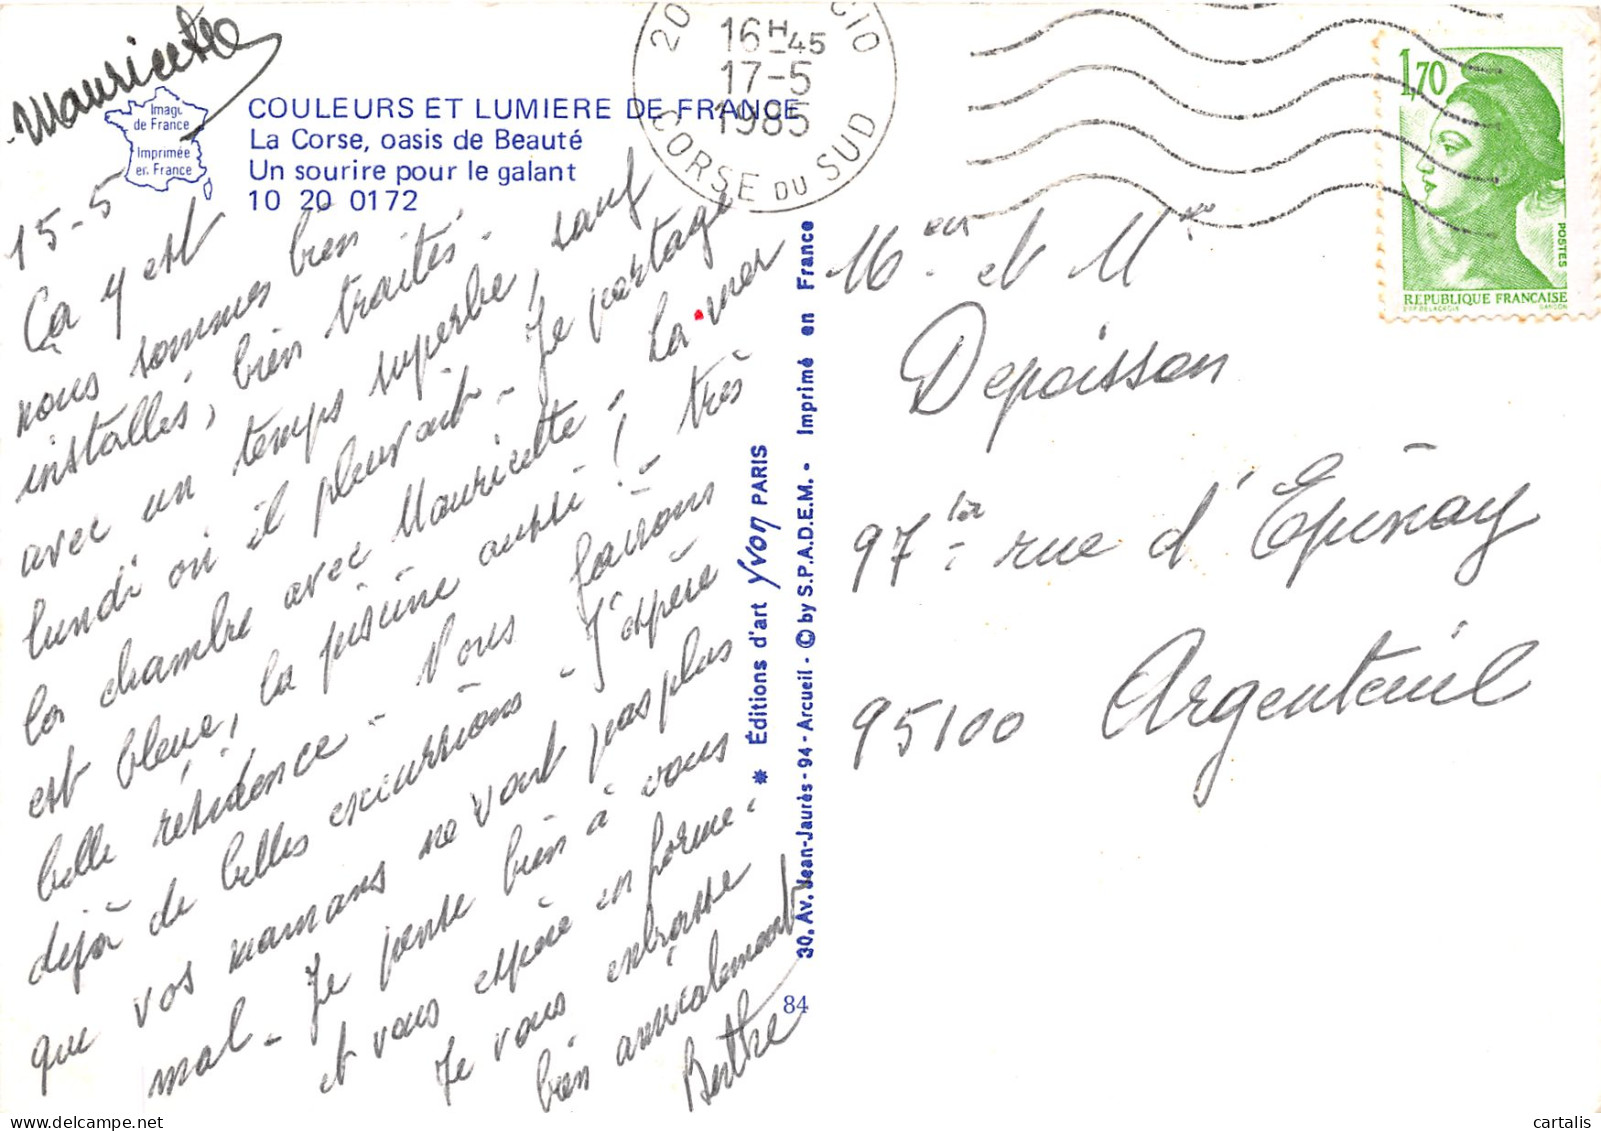 Mauricette
Image
de France
Imprimée
en France
COULEURS ET LUMIERE DE FRANCE
La Corse, oasis de Beauté
Un sourire pour le galant
10 20 0172
15-5
Ça y est
nous sommes bien
installés, bien traités -
avec un temps superbe, sauf
lundi où il pleuvait - Je partage
la chambre avec Mauricette - La mer
est bleue, la piscine aussi ! - très
belle résidence - Nous faisons
déjà de belles excursions - J'espère
que vos mamans ne vont pas plus
mal - Je pense bien à vous
et vous espère en forme.
Je vous embrasse
bien amicalement
Berthe
* Éditions d'art Yvon PARIS
30, Av. Jean-Jaurès - 94 - Arcueil - © by S.P.A.D.E.M. - Imprimé en France
84
20 CIO
16H45
17-5
1985
CORSE DU SUD
1,70
POSTES
REPUBLIQUE FRANÇAISE
D'AP. DELACROIX GANDON
M. et M
Depoisson
97 rue d'Epinay
95100 Argenteuil
cartalis